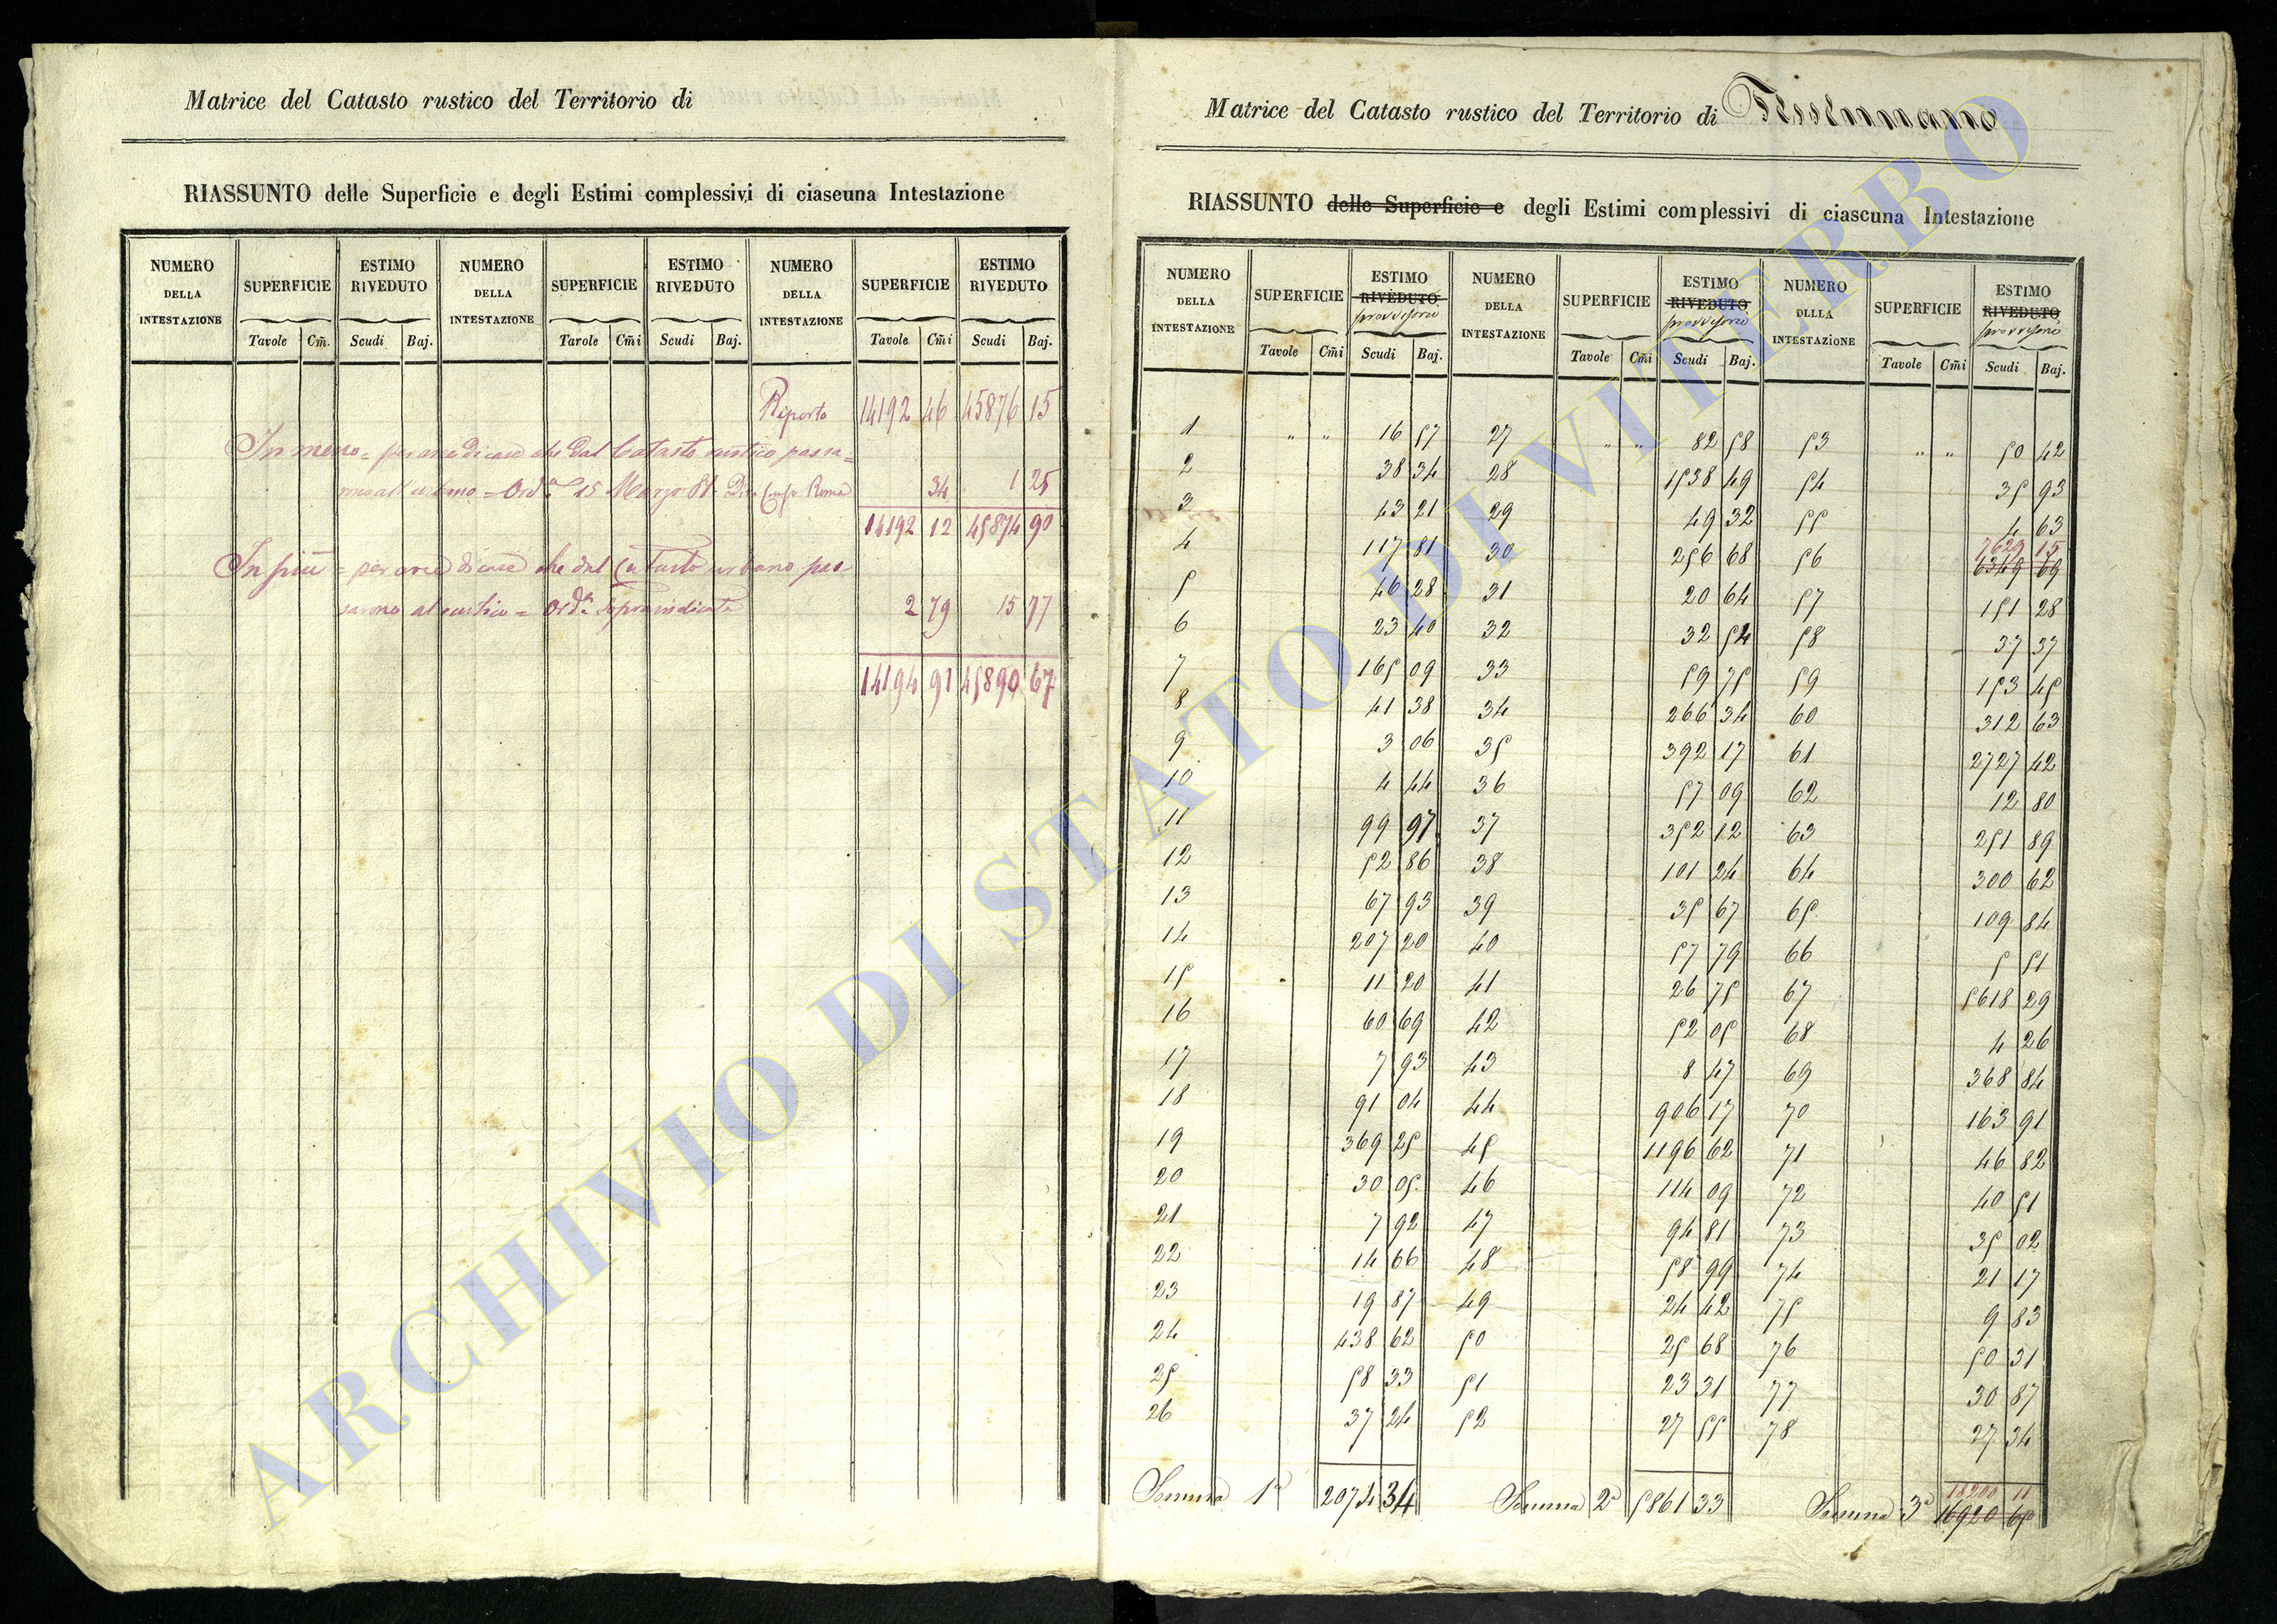 Matrice del Catasto rustico del Territorio di
RIASSUNTO delle Superficie e degli Estimi complessivi di ciaseuna Intestazione
NUMERO DELLA INTESTAZIONE SUPERFICIE ESTIMO RIVEDUTO NUMERO DELLA INTESTAZIONE SUPERFICIE ESTIMO RIVEDUTO NUMERO DELLA INTESTAZIONE SUPERFICIE ESTIMO RIVEDUTO
Tavole Cm̃. Scudi Baj. Tavole Cm̃i Scudi Baj. Tavole Cm̃i Scudi Baj.
Riporto 14192 46 45876 15
In meno = per aree di case che dal Catasto rustico passa=
rono all'urbano = Ord. 15 Marzo 81 Roma 34 1 25
14192 12 45874 90
In più = per aree di case che dal Catasto urbano pas-
sarono al rustico = Ord. sopraindicata 2 79 15 77
14194 91 45890 67
Matrice del Catasto rustico del Territorio di
RIASSUNTO delle Superficie e degli Estimi complessivi di ciascuna Intestazione
NUMERO DELLA INTESTAZIONE SUPERFICIE ESTIMO RIVEDUTO provvisorio NUMERO DELLA INTESTAZIONE SUPERFICIE ESTIMO RIVEDUTO provvisorio NUMERO DLLLA INTESTAZIONE SUPERFICIE ESTIMO RIVEDUTO provvisorio
Tavole Cm̃i Scudi Baj. Tavole Cm̃i Scudi Baj. Tavole Cm̃i Scudi Baj.
1 " " 16 57 27 " " 82 58 53 " " 50 42
2 38 34 28 1538 49 54 35 93
3 43 21 29 49 32 55 4 63
7629 15
4 117 81 30 256 68 56 6349 69
5 46 28 31 20 64 57 151 28
6 23 40 32 32 54 58 37 37
7 165 09 33 59 75 59 153 45
8 41 38 34 266 34 60 312 63
9 3 06 35 392 17 61 2727 42
10 4 44 36 57 09 62 12 80
11 99 97 37 352 12 63 251 89
12 52 86 38 101 24 64 300 62
13 67 93 39 35 67 65 109 84
14 207 20 40 57 79 66 5 51
15 11 20 41 26 75 67 5618 29
16 60 69 42 52 05 68 4 26
17 7 93 43 8 47 69 368 84
18 91 04 44 906 17 70 163 91
19 369 25 45 1196 62 71 46 82
20 30 05 46 114 09 72 40 51
21 7 92 47 94 81 73 35 02
22 14 66 48 58 99 74 21 17
23 19 87 49 24 42 75 9 83
24 438 62 50 25 68 76 50 31
25 58 33 51 23 31 77 30 87
26 37 24 52 27 55 78 27 34
18200 11
Somma 1ª 2074 34 Somma 2ª 5861 33 Somma 3ª 16920 65
ARCHIVIO DI STATO DI VITERBO